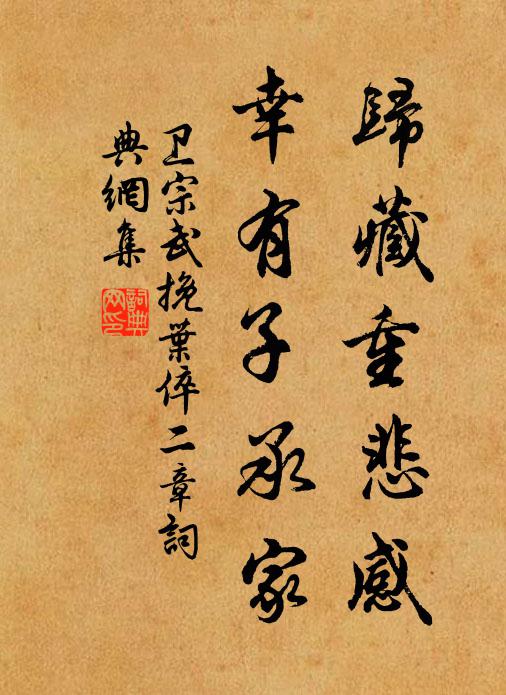 歸藏重悲感
幸有子承家
卫宗武挽葉倅二章詞
典網集
詞典
网印